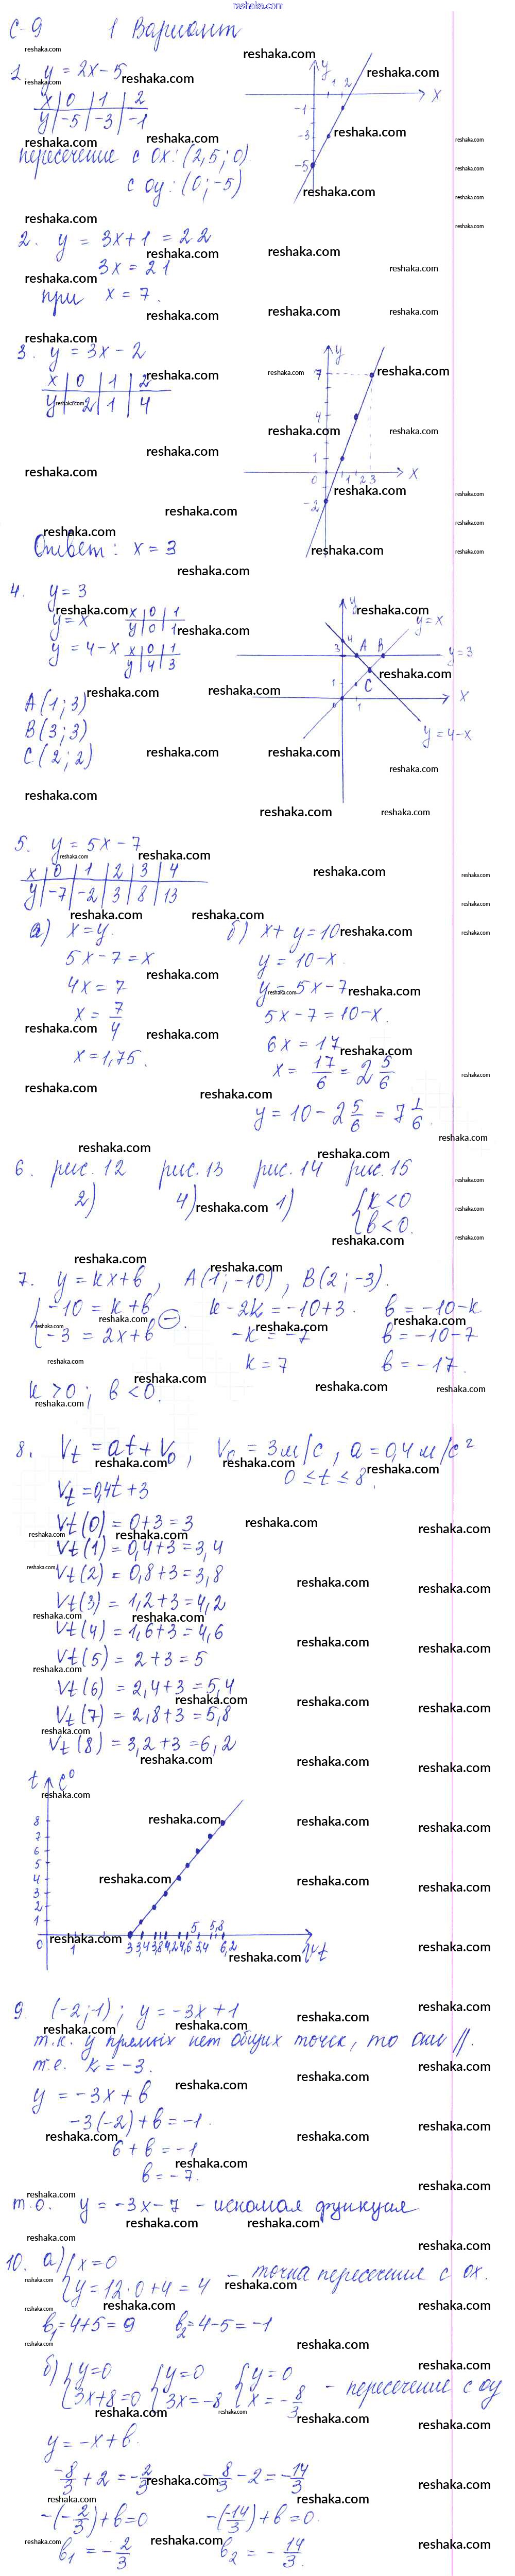 reshaka.com
С-9 1 Вариант
1. y = 2x - 5
x | 0 | 1 | 2
y | -5 | -3 | -1
пересечение с Ox: (2,5; 0)
с oy: (0; -5)
y
1 2
x
-1
-3
-5
2. y = 3x + 1 = 22
3x = 21
при x = 7.
3. y = 3x - 2
x | 0 | 1 | 2
y | -2 | 1 | 4
y
7
4
1
0 1 2 3 x
-2
Ответ: x = 3
4. y = 3
y = x
x | 0 | 1
y | 0 | 1
y = 4 - x
x | 0 | 1
y | 4 | 3
A (1; 3)
B (3; 3)
C (2; 2)
y
y = x
4
3 A B y = 3
C
1
0 1 x
y = 4 - x
5. y = 5x - 7
x | 0 | 1 | 2 | 3 | 4
y | -7 | -2 | 3 | 8 | 13
а) x = y. б) x + y = 10
5x - 7 = x y = 10 - x.
4x = 7 y = 5x - 7
x = 7/4 5x - 7 = 10 - x.
x = 1,75. 6x = 17
x = 17/6 = 2 5/6
y = 10 - 2 5/6 = 7 1/6.
6. рис. 12 рис. 13 рис. 14 рис. 15
2) 4) 1) { k < 0
b < 0.
7. y = kx + b, A(1; -10), B(2; -3).
{ -10 = k + b k - 2k = -10 + 3. b = -10 - k
-3 = 2x + b (-). -k = -7 b = -10 - 7
k = 7 b = -17.
k > 0; b < 0.
8. Vt = at + V0, V0 = 3 м/с, a = 0,4 м/с²
0 ≤ t ≤ 8,
Vt = 0,4t + 3
Vt(0) = 0 + 3 = 3
Vt(1) = 0,4 + 3 = 3,4
Vt(2) = 0,8 + 3 = 3,8
Vt(3) = 1,2 + 3 = 4,2
Vt(4) = 1,6 + 3 = 4,6
Vt(5) = 2 + 3 = 5
Vt(6) = 2,4 + 3 = 5,4
Vt(7) = 2,8 + 3 = 5,8
Vt(8) = 3,2 + 3 = 6,2
t
8
7
6
5
4
3
2
1
0 1 3 3,4 3,8 4,2 4,6 5 5,4 5,8 6,2
9. (-2; -1); y = -3x + 1
т.к. у прямых нет общих точек, то они //.
т.е. k = -3.
y = -3x + b
-3(-2) + b = -1.
6 + b = -1
b = -7.
т.о. y = -3x - 7 - искомая функция
10. а) { x = 0
y = 12·0 + 4 = 4 - точка пересечение с ox.
b1 = 4 + 5 = 9 b2 = 4 - 5 = -1
б) { y = 0 { y = 0 { y = 0
3x + 8 = 0 3x = -8 x = -8/3 - пересечение с oy
y = -x + b.
-8/3 + 2 = -2/3 -8/3 - 2 = -14/3
-(-2/3) + b = 0 -(-14/3) + b = 0.
b1 = -2/3 b2 = -14/3.